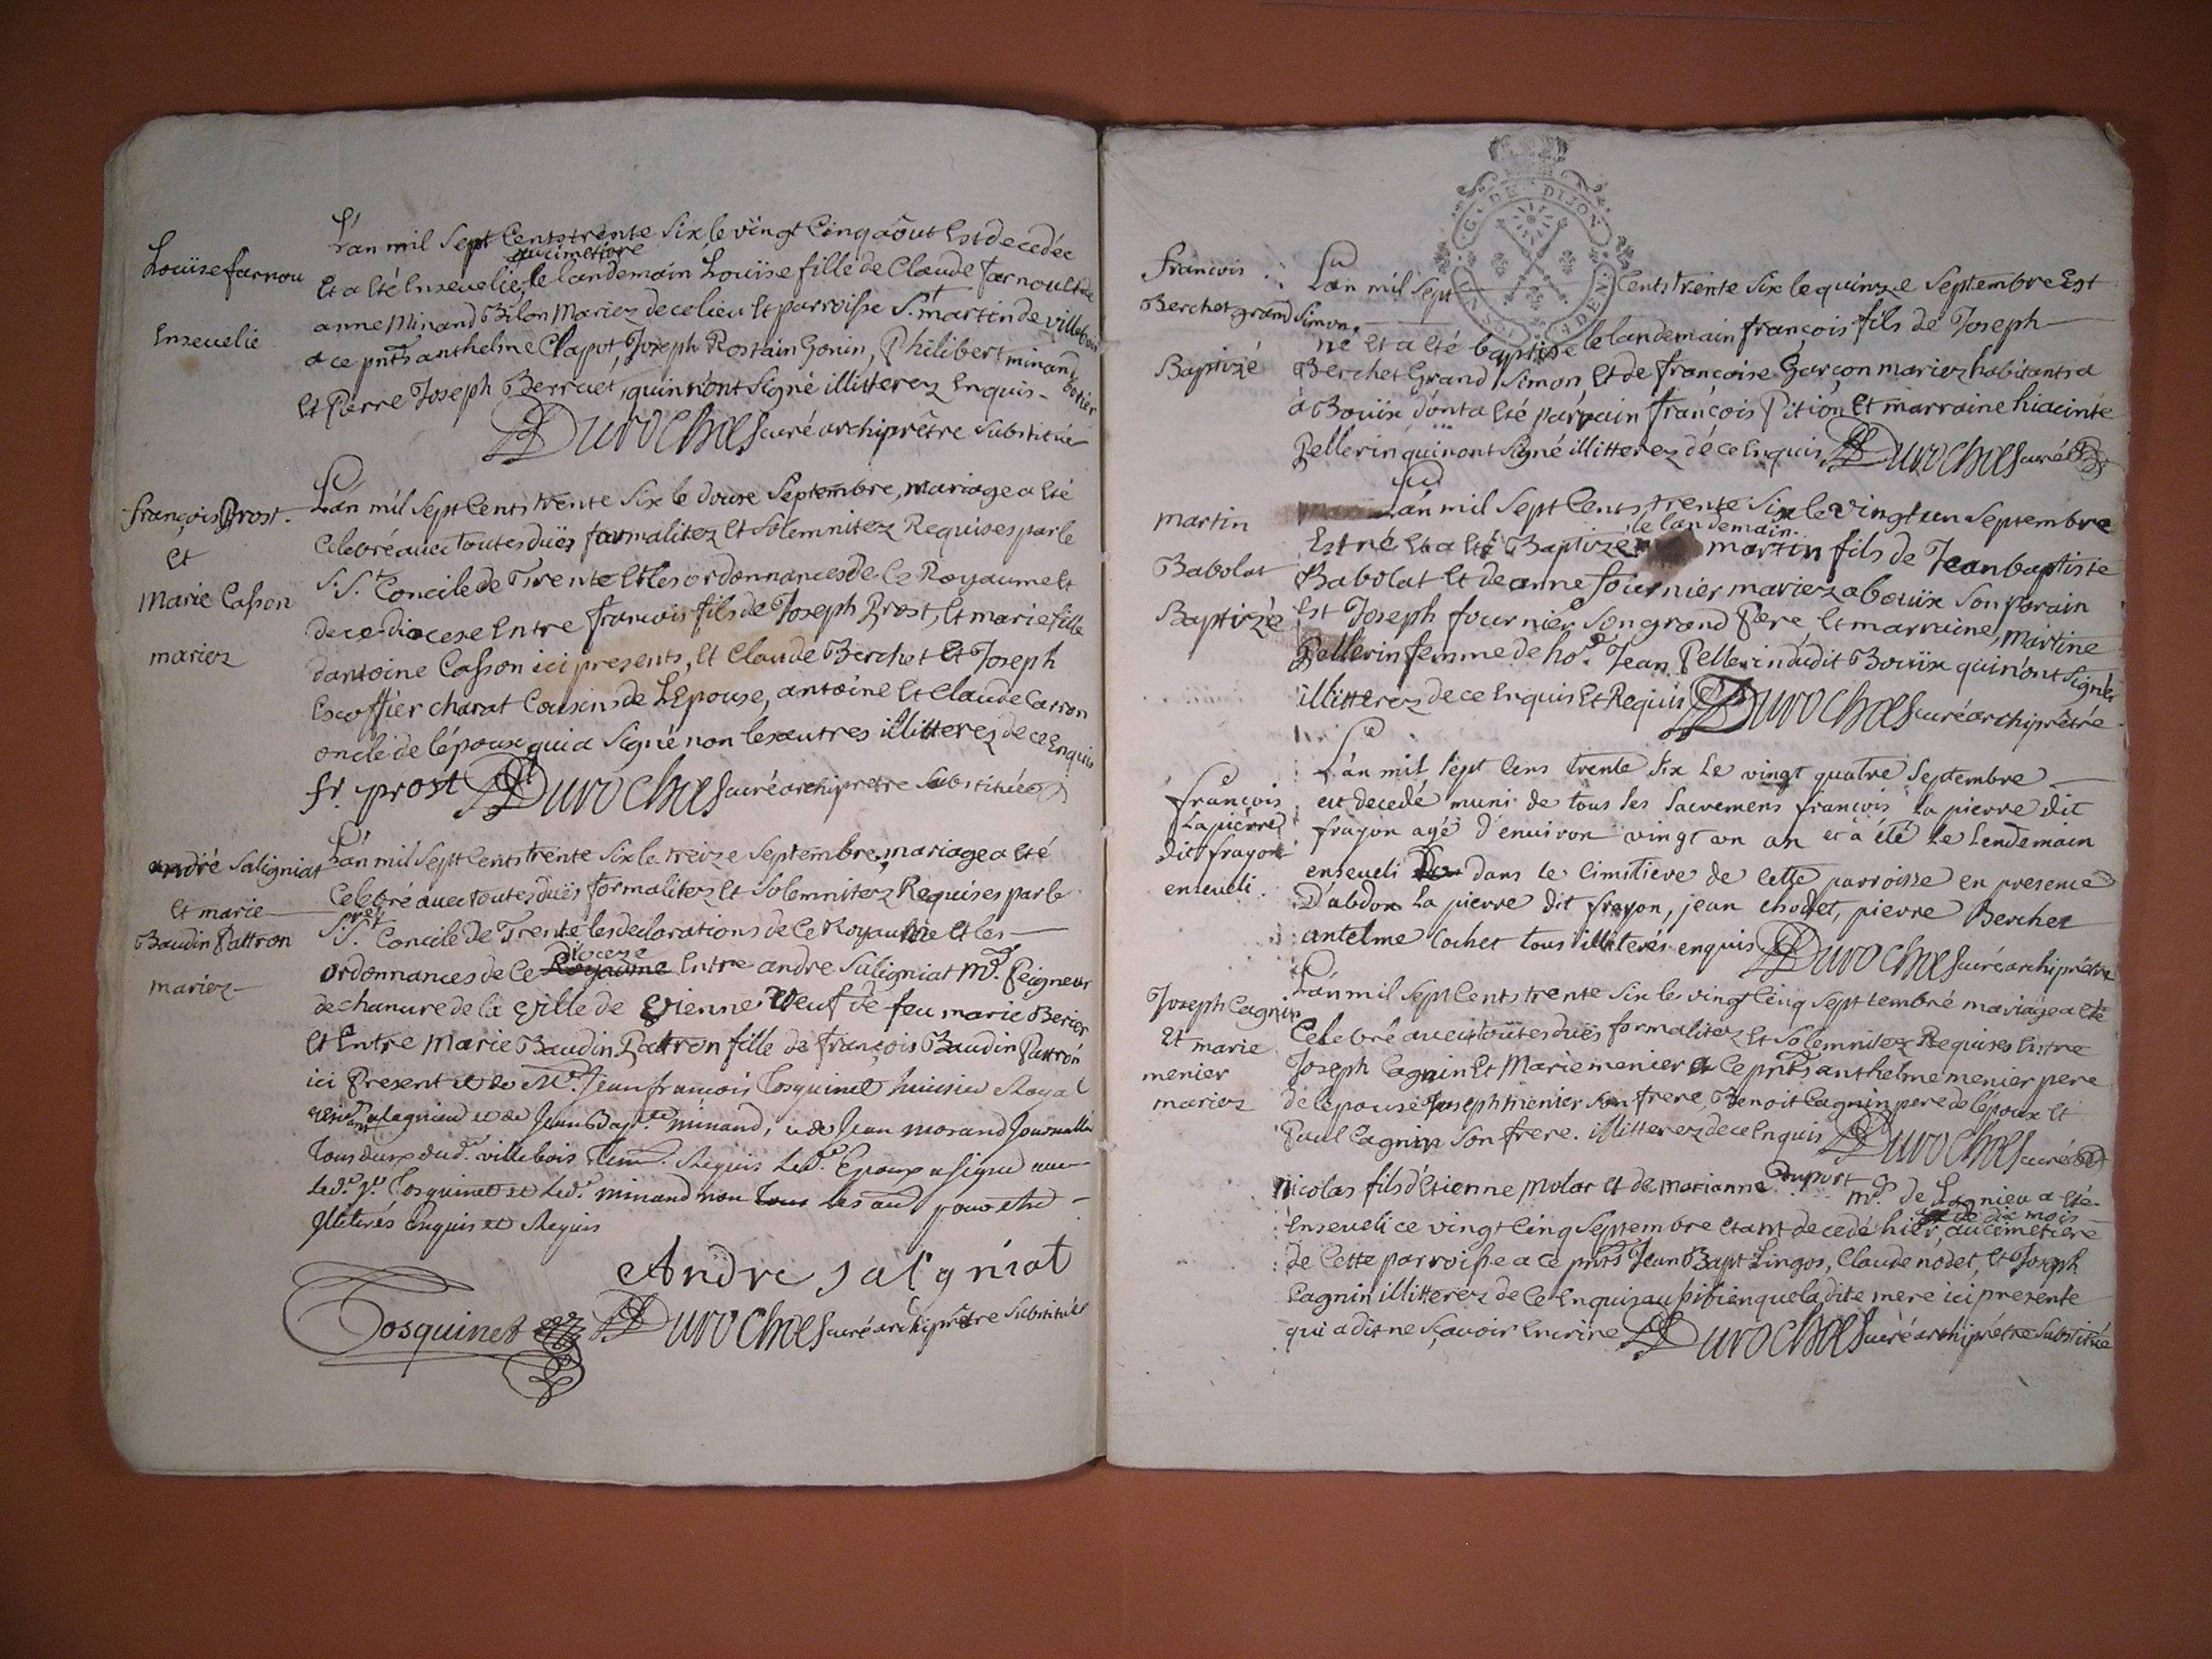 Loüise farnou
Enseuelie
L'an mil Sept Cents trente Six le vingt Cinq aôut Est decedée
au cimetiere
Et a Eté Enseuelie le landemain Loüise fille de Claude farnoult et de
anne Minand Bilon Mariez de ce lieu Et parroisse St. martin de villebois
a ce pnts anthelme Clapot, Joseph Rostain Gonin, Philibert minand
Et Pierre Joseph Berruet, qui n'ont Signé illitterez Enquis
Durochas curé archiprêtre Substitué
françois Prost
Et
Marie Casson
mariez
L'an mil Sept Cents trente Six le douze Septembre, mariage a Eté
Celebré auec Toutes duës formalitez Et Solemnitez Requises par le
S. St. Concile de Trente Et les ordonnances de Ce Royaume Et
de ce diocese Entre francois fils de Joseph Prost, Et marie fille
d'antoine Casson ici presents, Et Claude Berchet Et Joseph
Escoffier charat Cousins de L'Epouse, antoine Et Claude Carron
oncle de l'époux qui a Signé non les autres illitterez de ce Enquis
fr. prost Durochas curé archiprêtre Substitué
andré Saligniat
Et marie
Baudin Pattron
mariez
L'an mil Sept Cents trente Six le treize Septembre, mariage a Eté
Celebré auec toutes duës formalitez Et Solemnitez Requises par le
S. St. Concile de Trente les déclarations de Ce Royaume Et les
dioceze
ordonnances de Ce Royaume Entre andre Saligniat Md. Peigneur
de chanure de la Ville de Vienne Veuf de feu marie Berier
Et Entre Marie Baudin Pattron fille de françois Baudin Pattron
ici Present et de Me. Jean francois Tosquinet huissier Royal
a Lagnieu et de Jean Bapte. minand, et de Jean morand Journallier
Tous deux dud. villebois Requis Led. Epoux a signé auec
Led. Sr. Tosquinet et Led. minand non tous les au pour etre
Illiterés Enquis et Requis
Andre saligniat
Tosquinet Durochas curé archiprêtre Substitué
G. DE DIJON
francois
Berchet grand Simon
Baptizé
L'an mil Sept Cents trente Six le quinze Septembre Est
né Et a Eté baptise le landemain françois fils de Joseph
Berchet Grand Simon, Et de françoise Garçon mariez habitants a
à Bouïx dont a Eté parrain françois Pition, Et marraine hiacinte
Pellerin qui n'ont Signé illitterez de ce Enquis Durochas curé
martin
Babolat
Baptizé
L'an mil Sept Cents trente Six le Vingt un Septembre
le landemain
Est né Et a Eté Baptizé martin fils de Jean baptiste
Babolat Et de anne fournier mariez a bouïx Son parain
Est Joseph fournier Son grand Pere, Et marraine, martine
Pellerin femme de ho. Jean Pellerin dudit Bouïx qui n'ont Signés
illitterez de ce Enquis Et Requis Durochas curé archiprêtre
françois
Lapierre
dit frayon
enseueli
L'an mil sept cens trente six Le vingt quatre Septembre
est decedé muni de tous les sacremens françois La pierre dit
frayon agé d'enuiron vingt un an et a été Le Lendemain
enseueli dans le Cimitiere de Cette parroisse en presence
D'abdon La pierre dit frayon, jean chodet, pierre Berchet
antelme Cochet tous illiterés enquis Durochas curé archiprêtre
Joseph Cagnin
Et marie
menier
mariez
L'an mil Sept Cents trente Six le vingt Cinq Septtembre mariage a Eté
Celebré auec toutes duës formalitez Et Solemnitez Requises Entre
Joseph Cagnin Et Marie menier a Ce pnts anthelme menier pere
de l'épouse Joseph menier Son frere, Benoit Cagnin pere de l'époux Et
Paul Cagnin Son frere. illitterez de ce Enquis Durochas curé
Nicolas fils d'Etienne Molar Et de marianne Duport md. de Lagnieu a Eté
de dix mois
Enseueli ce vingt Cinq Septembre Etant decedé hier, au cimetiere
de Cette parroisse a Ce pnts Jean Bapt Lingos, Claude nodet, Et Joseph
Cagnin illitterez de Ce Enquis aussi bien que la dite mere ici presente
qui a dit ne Sçauoir Ecrire Durochas curé archiprêtre Substitué